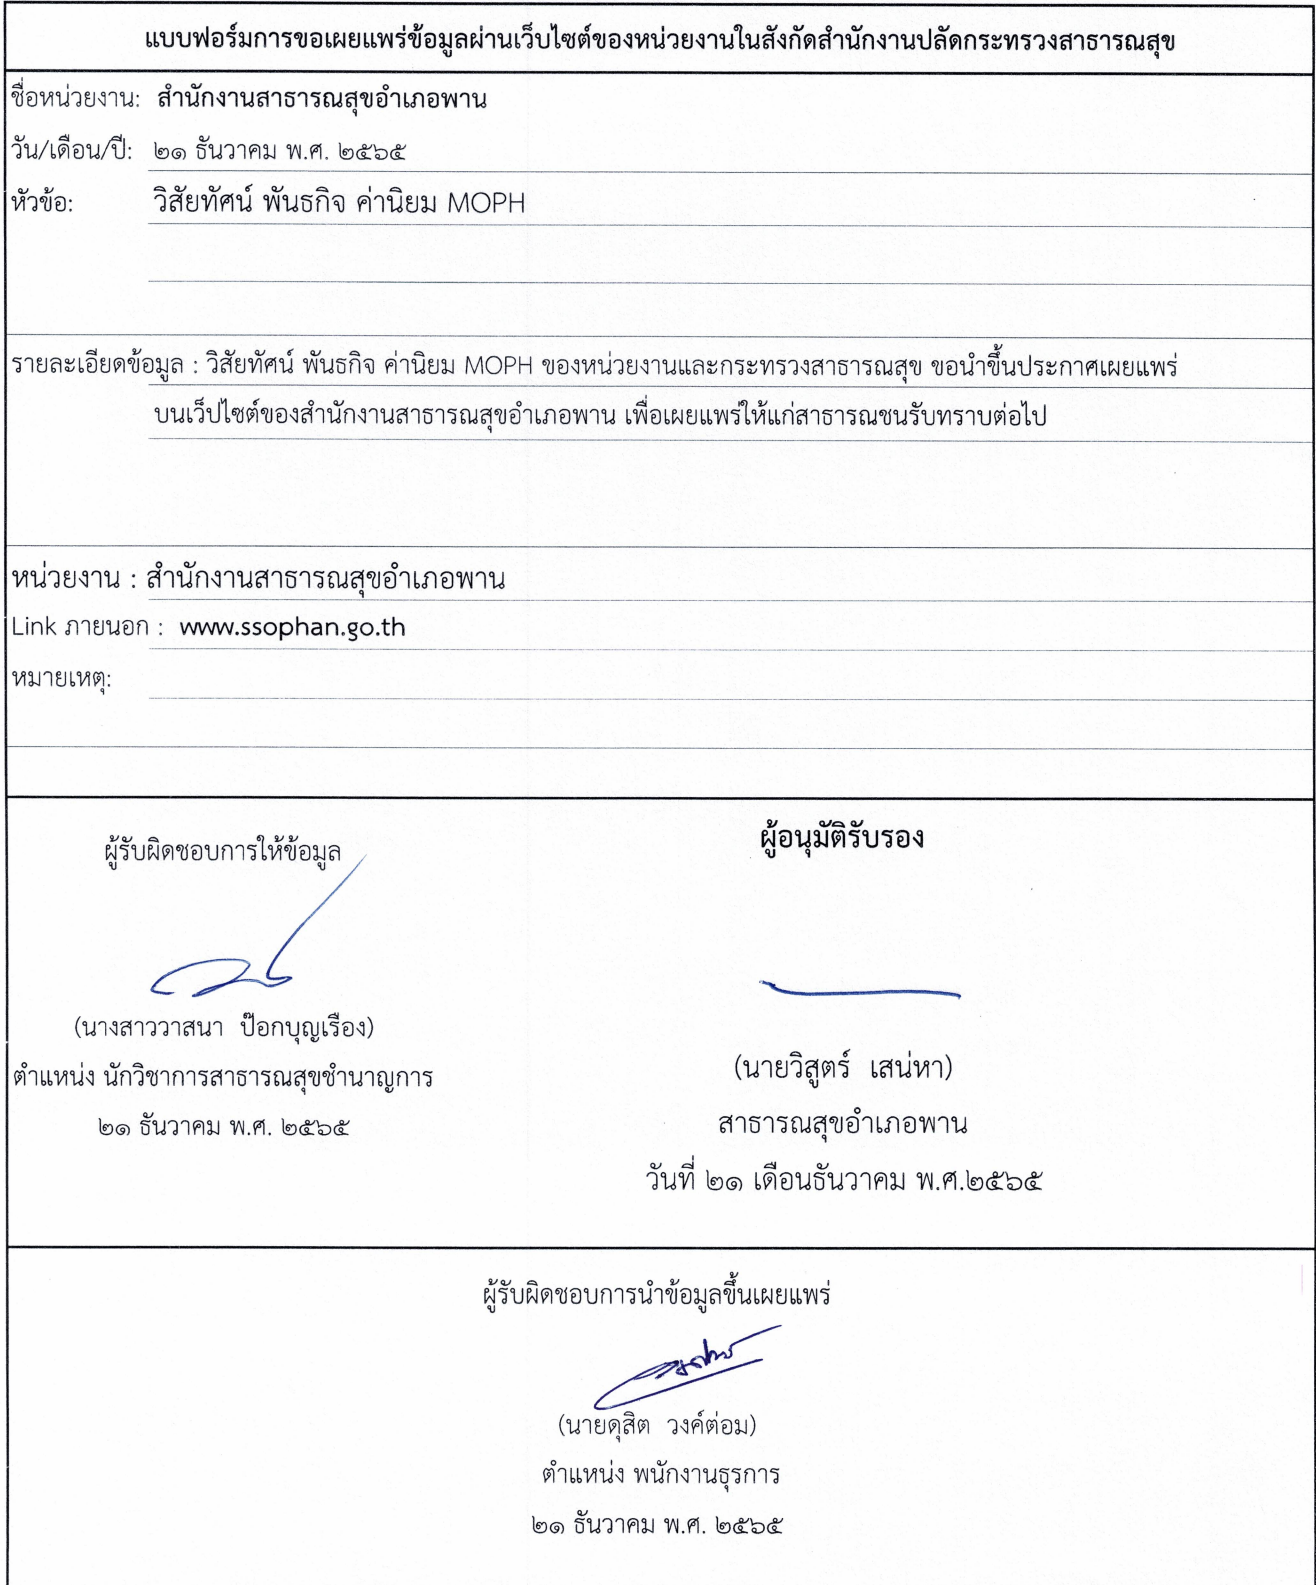 แบบฟอร์มการขอเผยแพร่ข้อมูลผ่านเว็บไซต์ของหน่วยงานในสังกัดสำนักงานปลัดกระทรวงสาธารณสุข
ชื่อหน่วยงาน: สำนักงานสาธารณสุขอำเภอพาน
วัน/เดือน/ปี: ๒๑ ธันวาคม พ.ศ. ๒๕๖๕
หัวข้อ: วิสัยทัศน์ พันธกิจ ค่านิยม MOPH
รายละเอียดข้อมูล : วิสัยทัศน์ พันธกิจ ค่านิยม MOPH ของหน่วยงานและกระทรวงสาธารณสุข ขอนำขึ้นประกาศเผยแพร่
บนเว็ปไซต์ของสำนักงานสาธารณสุขอำเภอพาน เพื่อเผยแพร่ให้แก่สาธารณชนรับทราบต่อไป
หน่วยงาน : สำนักงานสาธารณสุขอำเภอพาน
Link ภายนอก : www.ssophan.go.th
หมายเหตุ:
ผู้รับผิดชอบการให้ข้อมูล
(นางสาววาสนา ป๊อกบุญเรือง)
ตำแหน่ง นักวิชาการสาธารณสุขชำนาญการ
๒๑ ธันวาคม พ.ศ. ๒๕๖๕
ผู้อนุมัติรับรอง
(นายวิสูตร์ เสน่หา)
สาธารณสุขอำเภอพาน
วันที่ ๒๑ เดือนธันวาคม พ.ศ.๒๕๖๕
ผู้รับผิดชอบการนำข้อมูลขึ้นเผยแพร่
(นายดุสิต วงค์ต่อม)
ตำแหน่ง พนักงานธุรการ
๒๑ ธันวาคม พ.ศ. ๒๕๖๕